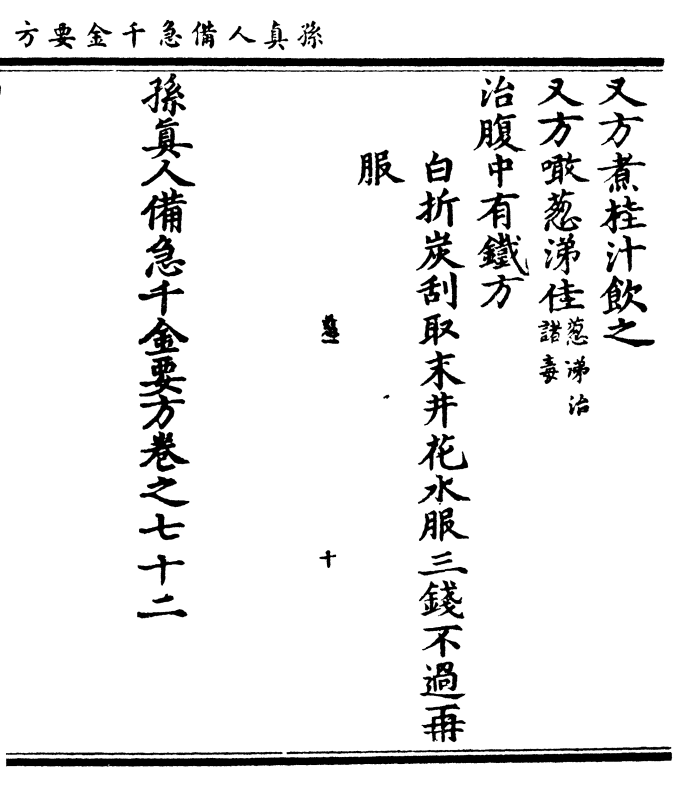 孫真人備急千金要方
又方煮桂汁飲之
又方噉葱涕佳葱涕治諸毒
治腹中有鐵方
白折炭刮取末井花水服三錢不過再
服
十
孫真人備急千金要方卷之七十二